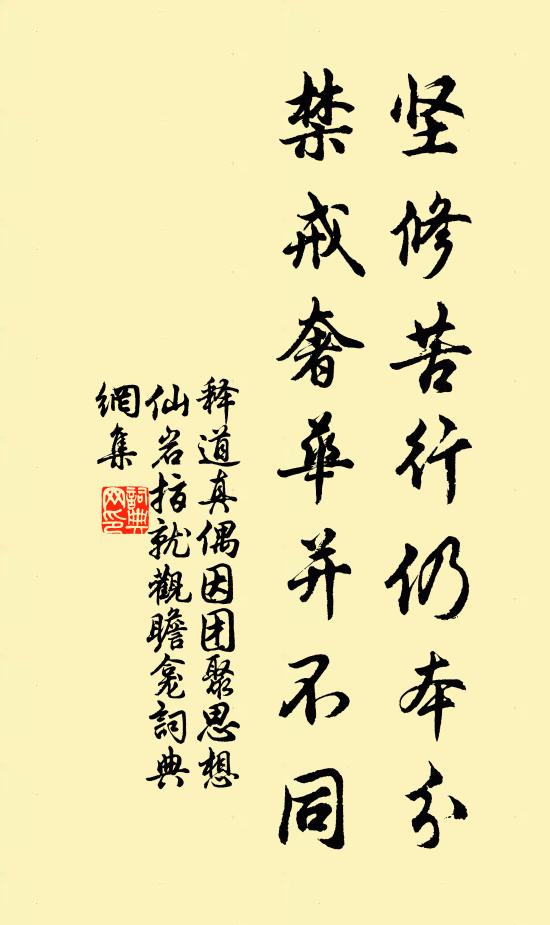 坚修苦行仍本分
禁戒奢华并不同
释道真偶因团聚思想
仙岩指就觀瞻龛詞典
網集
詞典网印